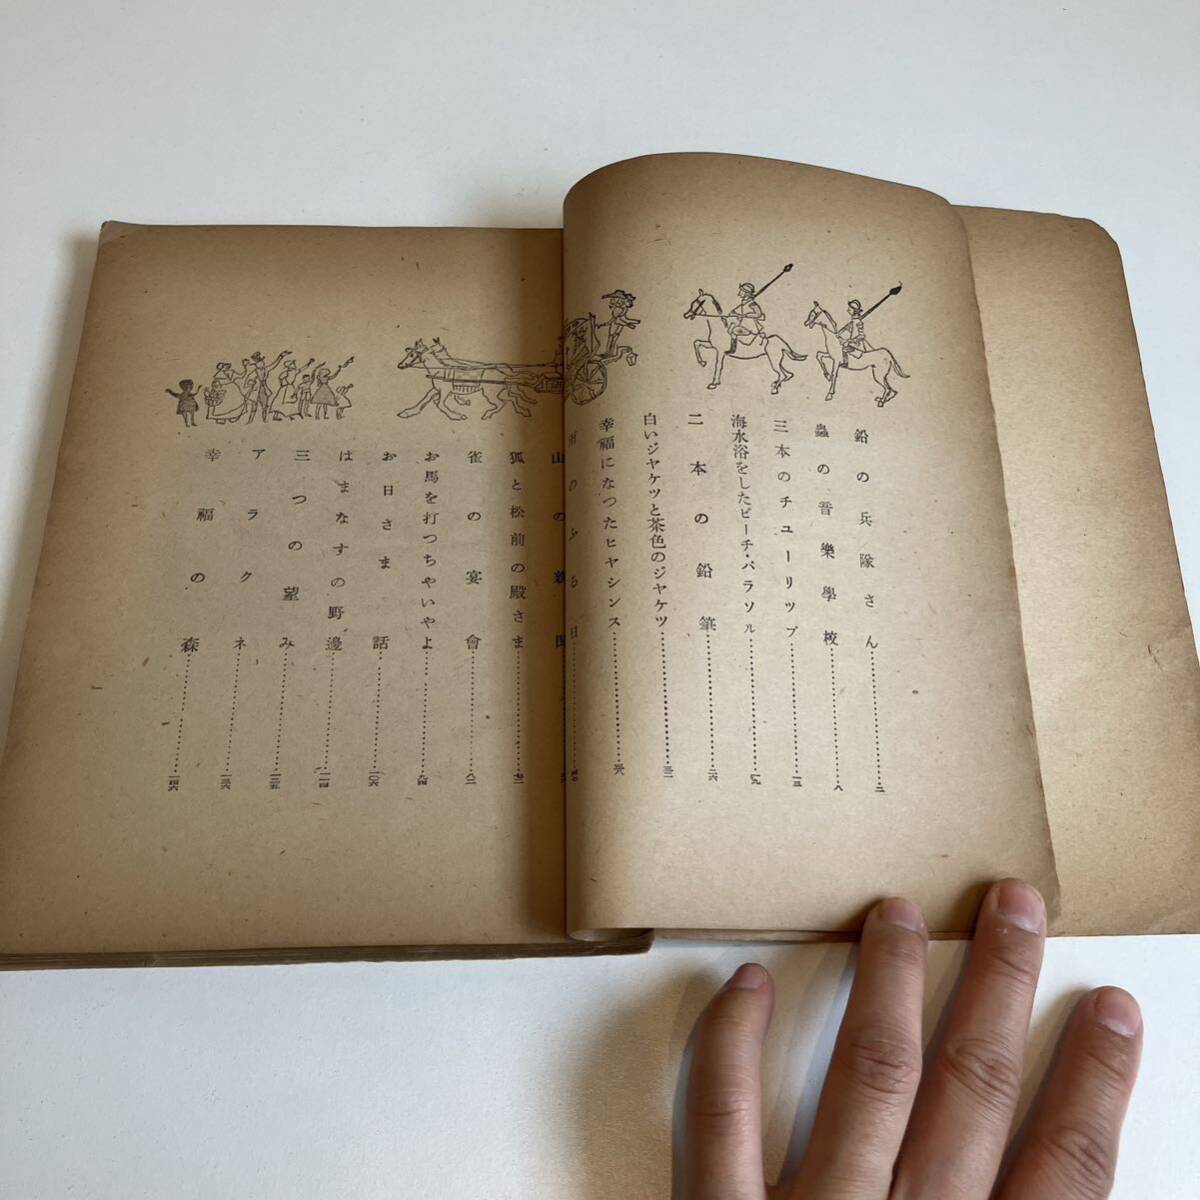 鉛の兵隊さん……二
蟲の音樂學校……八
三本のチューリップ……一三
海水浴をしたビーチ・パラソル……一九
二本の鉛筆……二六
白いジヤケツと茶色のジヤケツ……三二
幸福になつたヒヤシンス……三八
のふる日
山の
狐と松前の殿さま
雀の宴會……八二
お馬を打つちやいやよ……九四
お日さま話……一〇六
はまなすの野邊……一一四
三つの望み……一二五
アラクネ……一三六
幸福の森……一四六